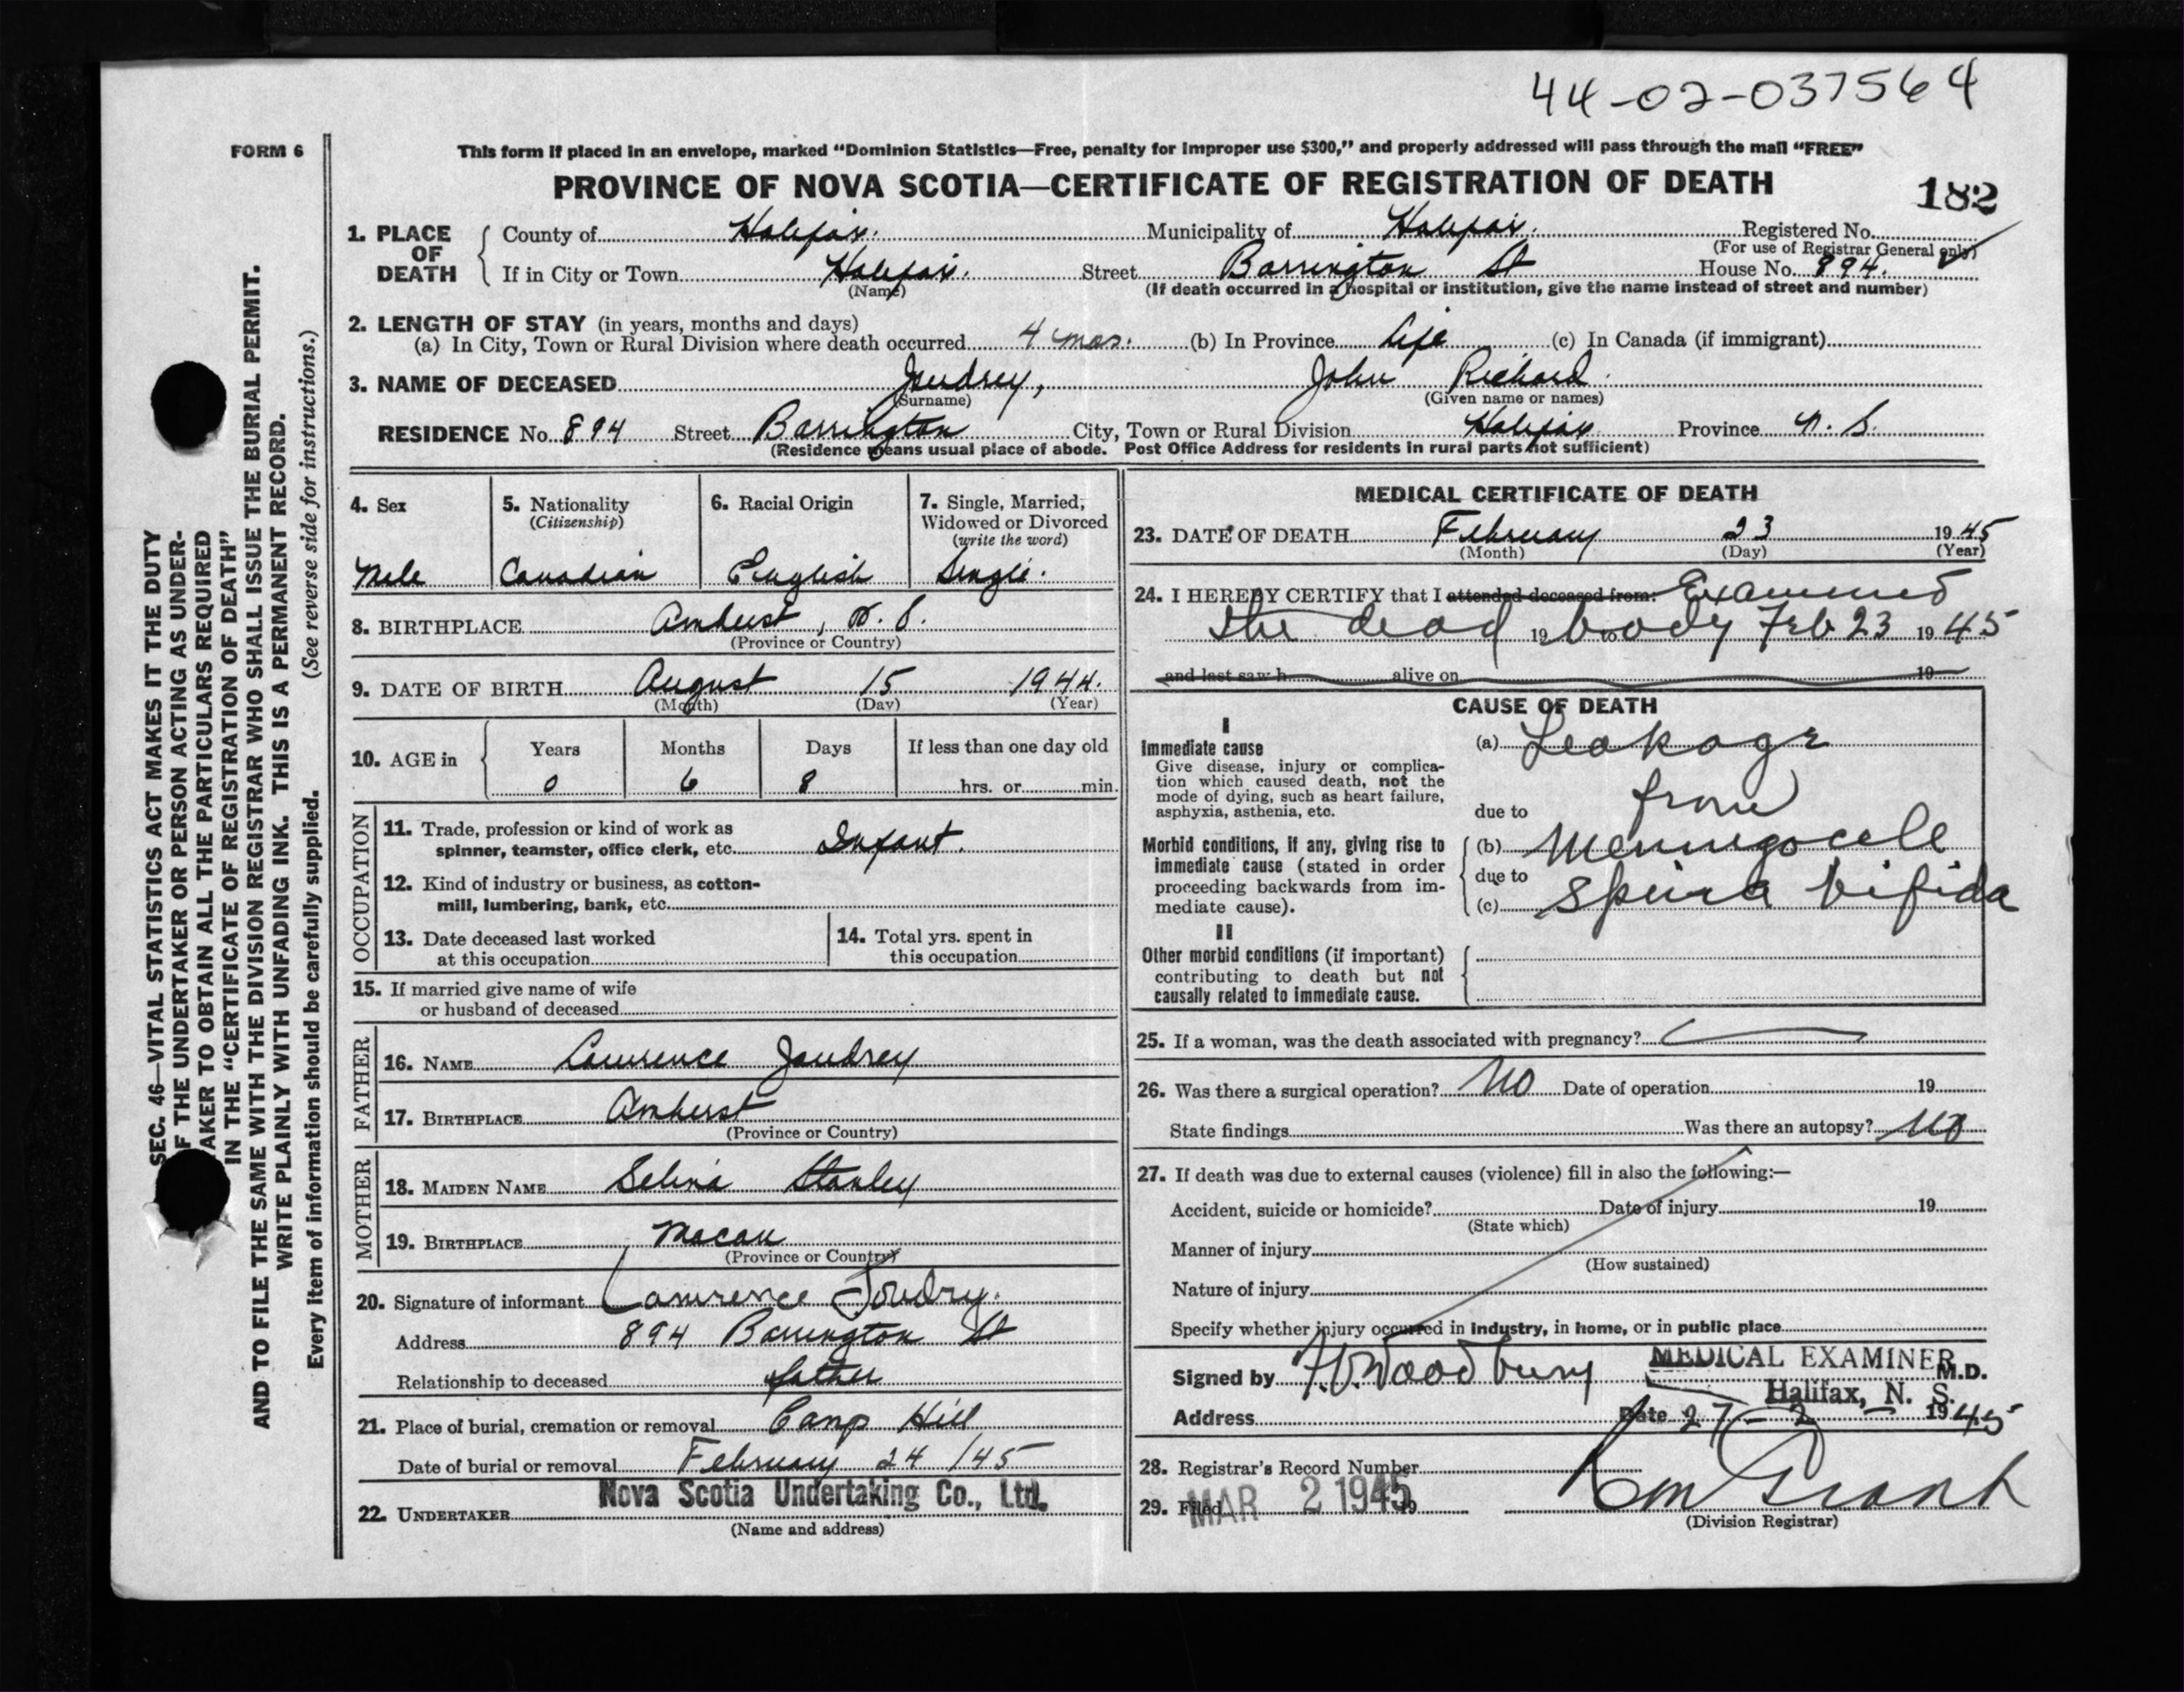 44-02-037564
FORM 6
This form if placed in an envelope, marked "Dominion Statistics—Free, penalty for improper use $300," and properly addressed will pass through the mail "FREE"
PROVINCE OF NOVA SCOTIA—CERTIFICATE OF REGISTRATION OF DEATH
182
1. PLACE OF DEATH
County of Halifax. Municipality of Halifax. Registered No.
(For use of Registrar General only)
If in City or Town Halifax. Street Barrington St House No. 894.
(Name) (If death occurred in a hospital or institution, give the name instead of street and number)
2. LENGTH OF STAY (in years, months and days)
(a) In City, Town or Rural Division where death occurred 4 mos. (b) In Province Life (c) In Canada (if immigrant)
3. NAME OF DECEASED Joudrey, John Richard.
(Surname) (Given name or names)
RESIDENCE No. 894 Street Barrington City, Town or Rural Division Halifax Province N. S.
(Residence means usual place of abode. Post Office Address for residents in rural parts not sufficient)
4. Sex
Male
5. Nationality
(Citizenship)
Canadian
6. Racial Origin
English
7. Single, Married,
Widowed or Divorced
(write the word)
Single.
8. BIRTHPLACE Amherst, N. S.
(Province or Country)
9. DATE OF BIRTH August 15 1944.
(Month) (Day) (Year)
10. AGE in
Years Months Days If less than one day old
0 6 8 hrs. or min.
OCCUPATION
11. Trade, profession or kind of work as
spinner, teamster, office clerk, etc. Infant.
12. Kind of industry or business, as cotton-
mill, lumbering, bank, etc.
13. Date deceased last worked
at this occupation
14. Total yrs. spent in
this occupation
15. If married give name of wife
or husband of deceased
FATHER
16. NAME Lawrence Joudrey
17. BIRTHPLACE Amherst
(Province or Country)
MOTHER
18. MAIDEN NAME Selina Stanley
19. BIRTHPLACE Macan
(Province or Country)
20. Signature of informant Lawrence Joudry.
Address 894 Barrington St
Relationship to deceased father
21. Place of burial, cremation or removal Camp Hill
Date of burial or removal February 24 /45
22. UNDERTAKER Nova Scotia Undertaking Co., Ltd.
(Name and address)
MEDICAL CERTIFICATE OF DEATH
23. DATE OF DEATH February 23 1945
(Month) (Day) (Year)
24. I HEREBY CERTIFY that I attended deceased from: Examined
the dead 19 body to Feb 23 1945
and last saw h alive on 19
CAUSE OF DEATH
I
Immediate cause
Give disease, injury or complica-
tion which caused death, not the
mode of dying, such as heart failure,
asphyxia, asthenia, etc.
(a) Leakage
due to from
Morbid conditions, if any, giving rise to
immediate cause (stated in order
proceeding backwards from im-
mediate cause).
(b) Meningocele
due to
(c) Spina bifida
II
Other morbid conditions (if important)
contributing to death but not
causally related to immediate cause.
25. If a woman, was the death associated with pregnancy?
26. Was there a surgical operation? No Date of operation 19
State findings Was there an autopsy? No
27. If death was due to external causes (violence) fill in also the following:—
Accident, suicide or homicide? Date of injury 19
(State which)
Manner of injury
(How sustained)
Nature of injury
Specify whether injury occurred in industry, in home, or in public place
Signed by Woodbury MEDICAL EXAMINER M.D.
Halifax, N. S.
Address Date 27-2-1945
28. Registrar's Record Number
29. Filed MAR 2 1945 19 Grant
(Division Registrar)
SEC. 46—VITAL STATISTICS ACT MAKES IT THE DUTY
OF THE UNDERTAKER OR PERSON ACTING AS UNDER-
TAKER TO OBTAIN ALL THE PARTICULARS REQUIRED
IN THE "CERTIFICATE OF REGISTRATION OF DEATH"
AND TO FILE THE SAME WITH THE DIVISION REGISTRAR WHO SHALL ISSUE THE BURIAL PERMIT.
WRITE PLAINLY WITH UNFADING INK. THIS IS A PERMANENT RECORD.
Every item of information should be carefully supplied. (See reverse side for instructions.)